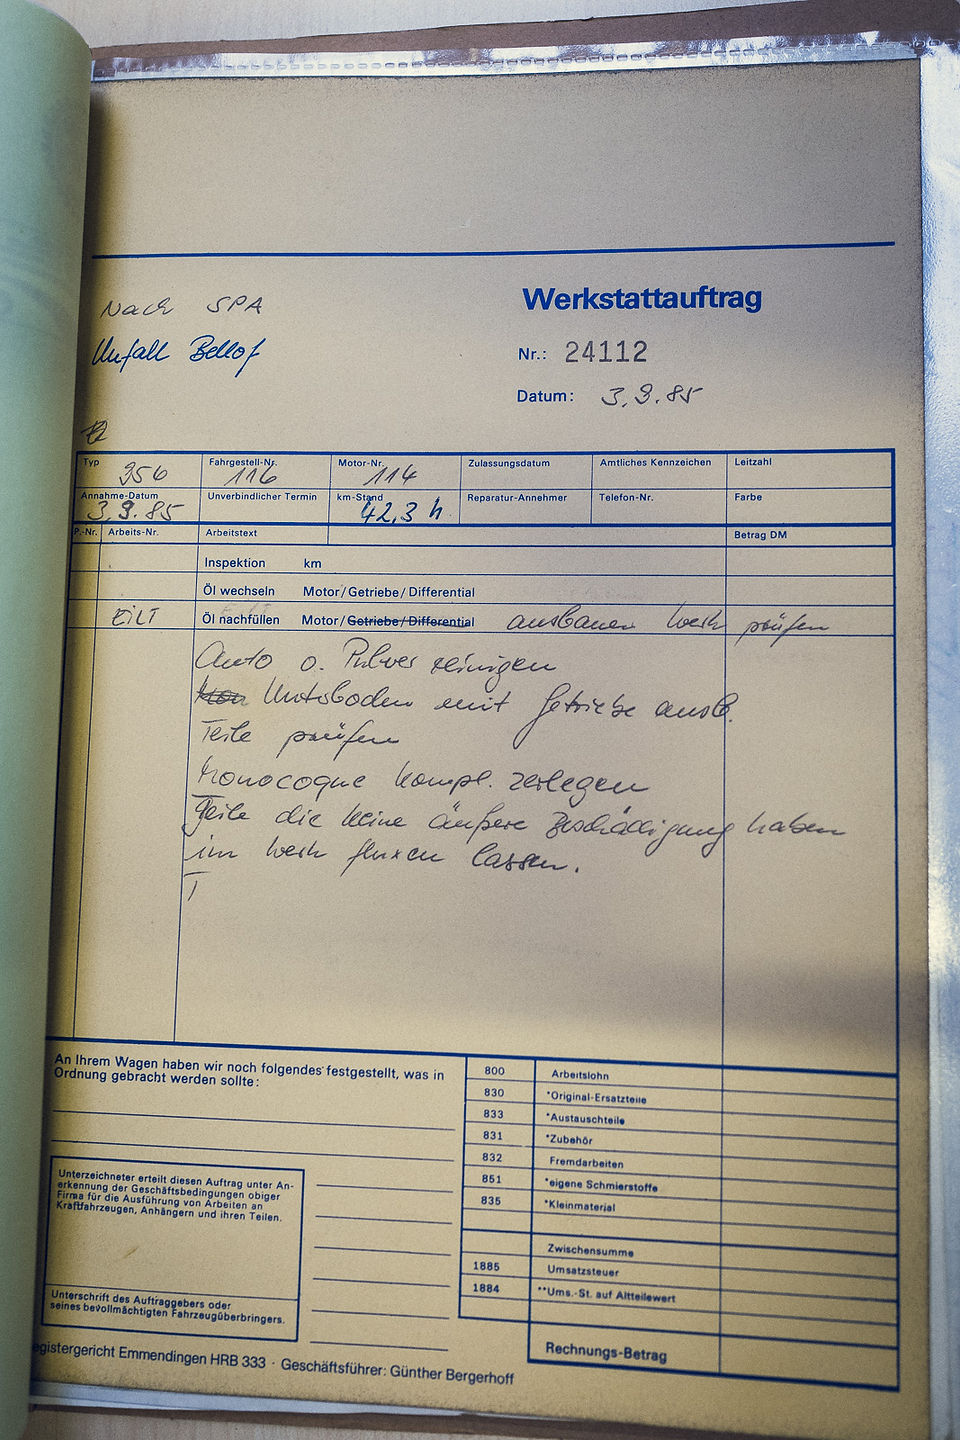 Nach SPA
Werkstattauftrag
Unfall Bellof
Nr.: 24112
Datum: 3.9.85
Typ Fahrgestell-Nr. Motor-Nr. Zulassungsdatum Amtliches Kennzeichen Leitzahl
956 116 114
Annahme-Datum Unverbindlicher Termin km-Stand Reparatur-Annehmer Telefon-Nr. Farbe
3.9.85 42,3 h
P.-Nr. Arbeits-Nr. Arbeitstext Betrag DM
Inspektion km
Öl wechseln Motor/Getriebe/Differential
EILT Öl nachfüllen Motor/Getriebe/Differential ausbauen Werk prüfen
Auto o. Pulver reinigen
Unterboden mit Getriebe ausb.
Teile prüfen
Monocoque kompl. zerlegen
Teile die keine äußere Beschädigung haben
im Werk fluxen lassen.
An Ihrem Wagen haben wir noch folgendes festgestellt, was in
Ordnung gebracht werden sollte:
Unterzeichneter erteilt diesen Auftrag unter An-
erkennung der Geschäftsbedingungen obiger
Firma für die Ausführung von Arbeiten an
Kraftfahrzeugen, Anhängern und ihren Teilen.
Unterschrift des Auftraggebers oder
seines bevollmächtigten Fahrzeugüberbringers.
800 Arbeitslohn
830 *Original-Ersatzteile
833 *Austauschteile
831 *Zubehör
832 Fremdarbeiten
851 *eigene Schmierstoffe
835 *Kleinmaterial
Zwischensumme
1885 Umsatzsteuer
1884 **Ums.-St. auf Altteilewert
Rechnungs-Betrag
egistergericht Emmendingen HRB 333 · Geschäftsführer: Günther Bergerhoff